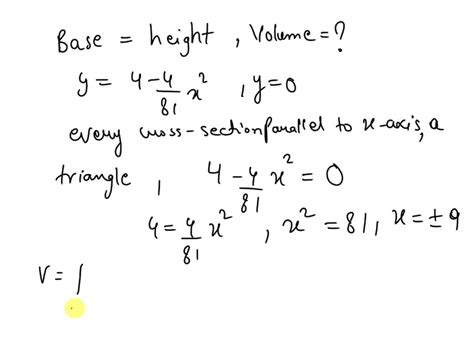 Base = height, Volume = ?
y = 4 - 4/81 x², y = 0
every cross-section parallel to x-axis, a
triangle, 4 - 4/81 x² = 0
4 = 4/81 x², x² = 81, x = ±9
V = ∫